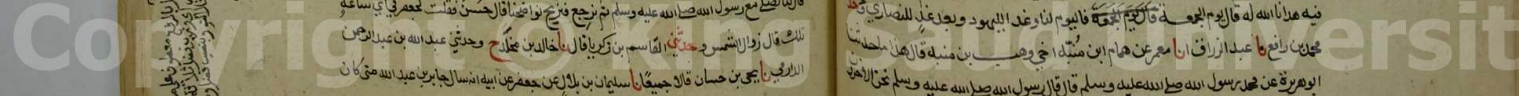 فيه هدانا الله له قال يوم الجمعة قال يوم الجمعة فاليوم لنا وغد لليهود وبعد غد للنصارى
محمد بن رافع نا عبد الرزاق انا معمر عن همام ابن منبه اخي وهب بن منبه قال هذا ما حدثنا
ابو هريرة عن محمد رسول الله صلى الله عليه وسلم قال قال رسول الله صلى الله عليه وسلم نحن الآخرون
مع رسول الله صلى الله عليه وسلم ثم نرجع فنريح نواضحنا قال حسن فقلت لجعفر في اي ساعة
تلك قال زوال الشمس وحدثني القاسم بن زكريا قال نا خالد بن مخلد ح وحدثني عبد الله بن عبد الرحمن
الدارمي نا يحيى بن حسان قالا جميعا نا سليمان بن بلال عن جعفر عن ابيه انه سال جابر بن عبد الله متى كان
Copyright © King Saud Universit